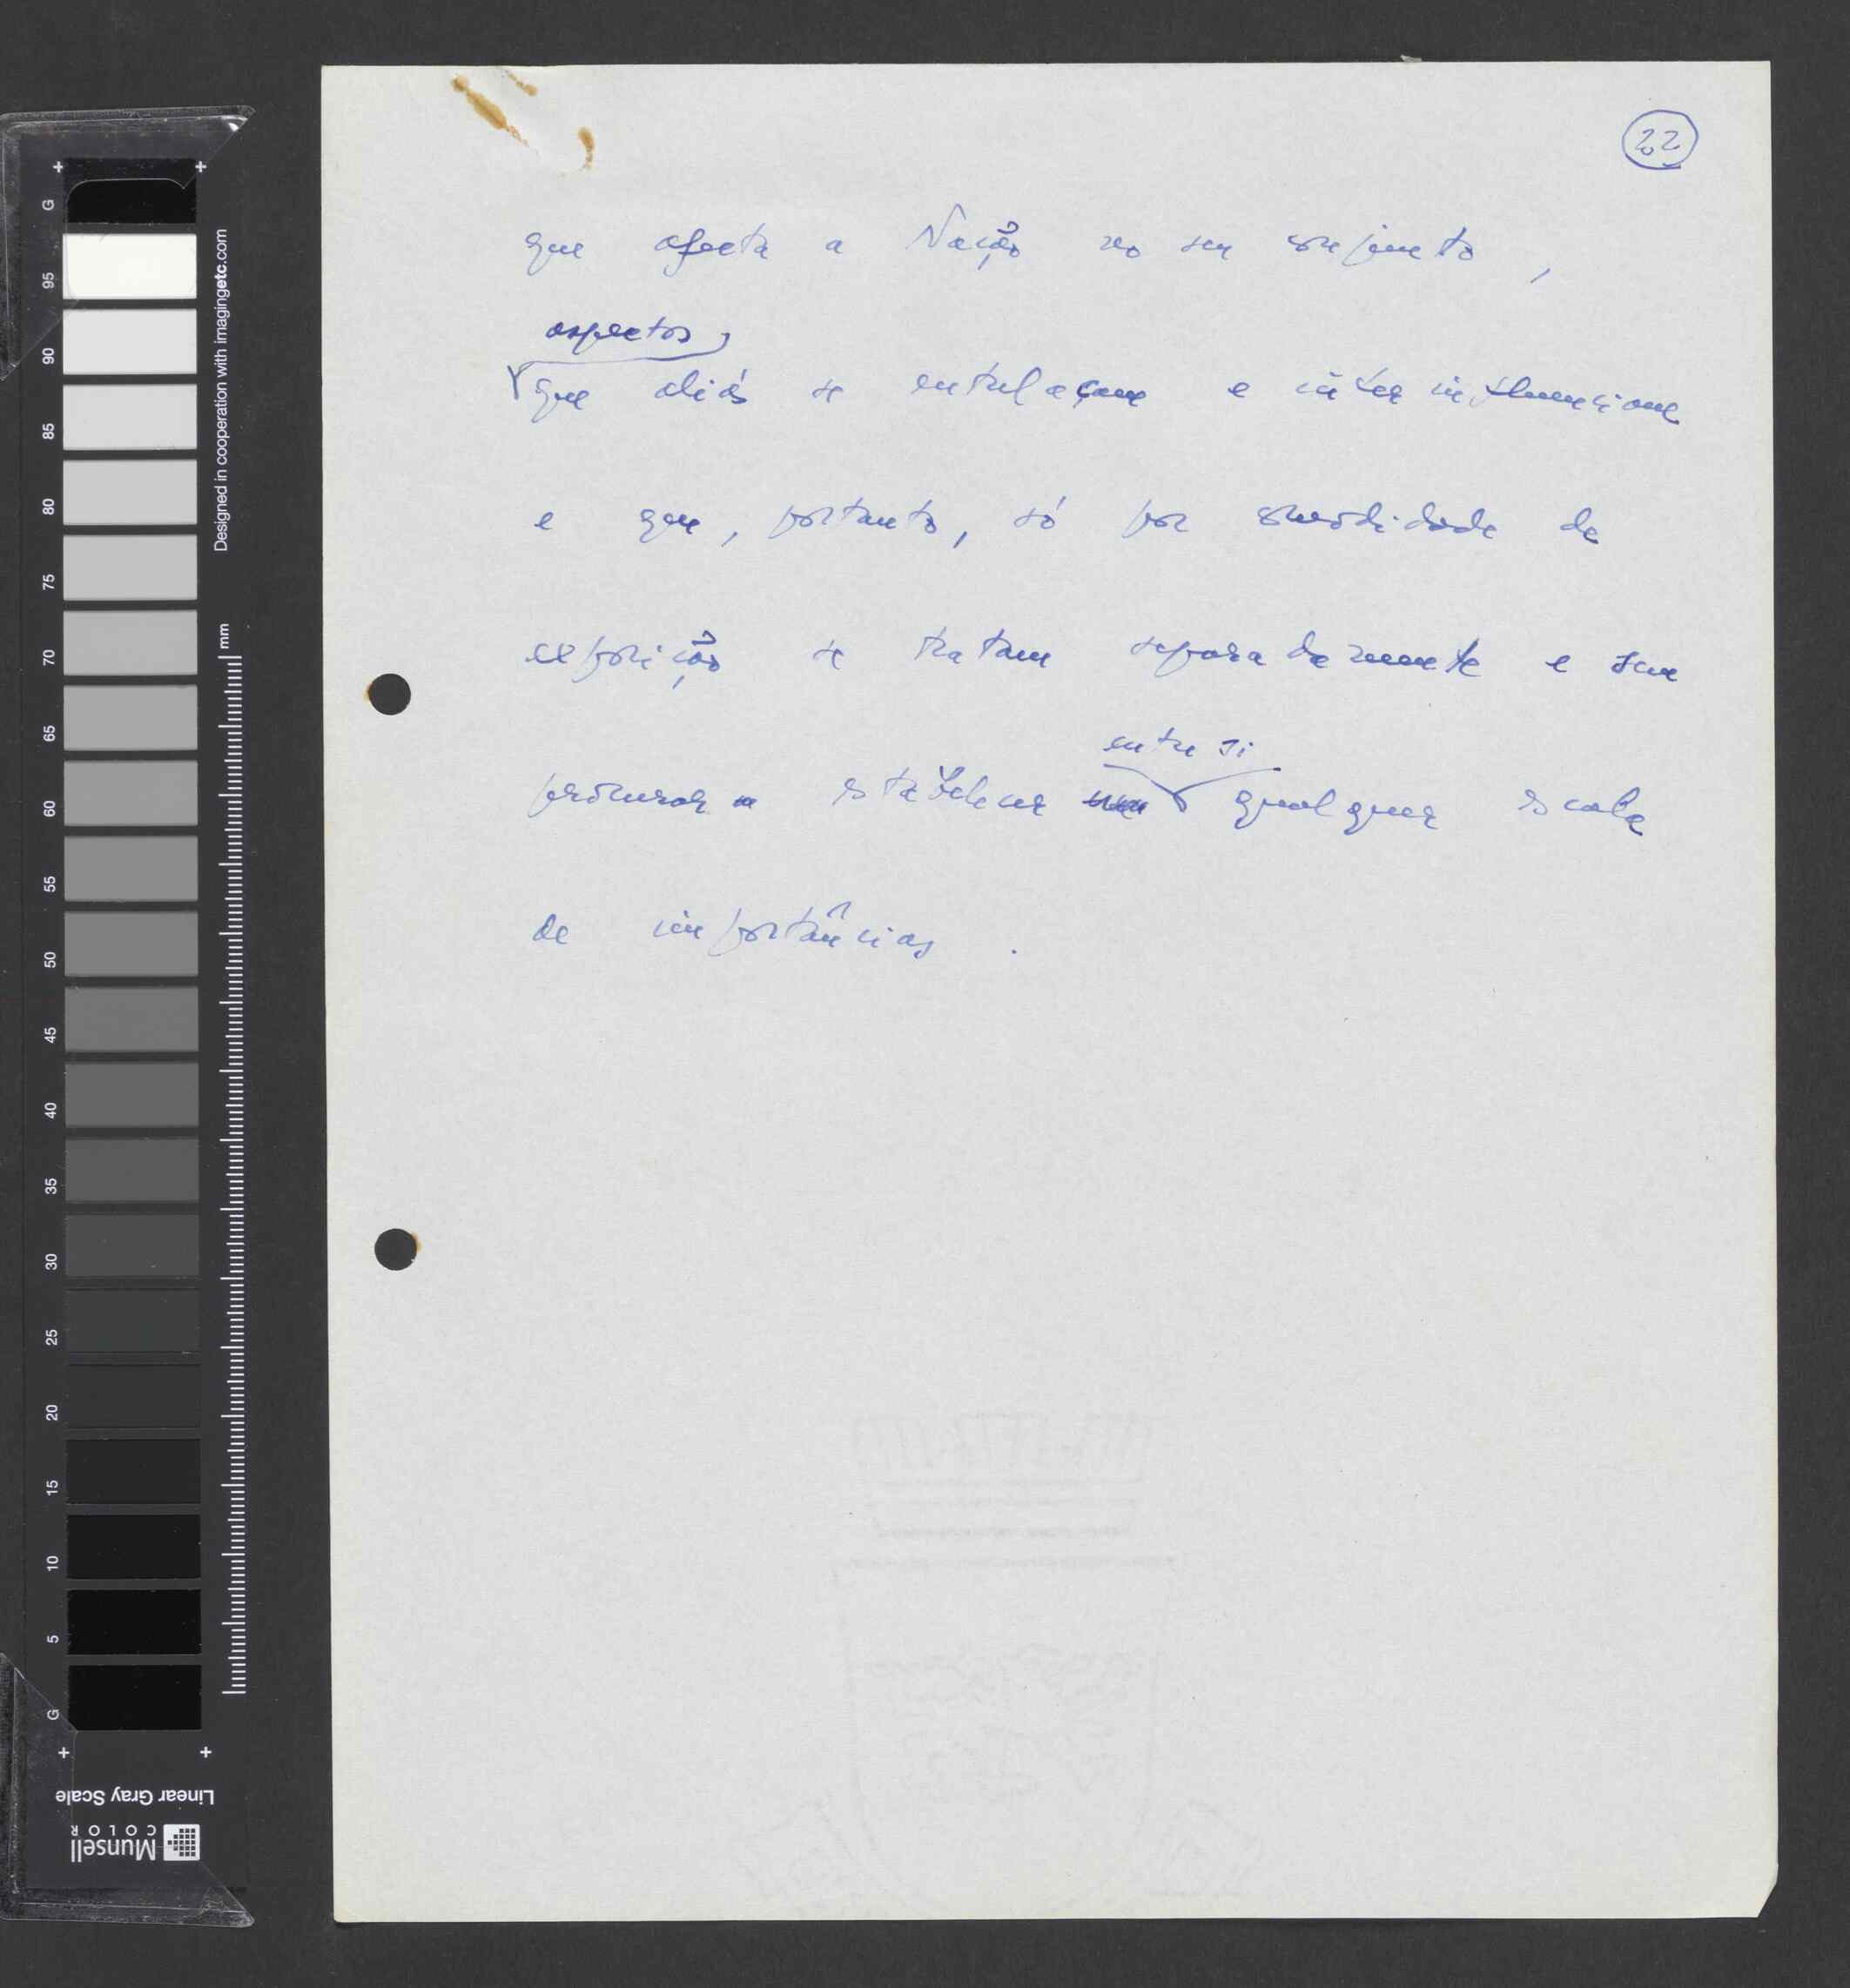 22
que afecta a Nação no seu conjunto,
aspectos,
que aliás se entrelaçam e inter influenciam
e que, portanto, só por comodidade de
exposição se tratam separadamente e sem
entre si
procurar estabelecer qualquer escala
de importâncias.
G 95 90 85 80 75 70 65 60 55 50 45 40 35 30 25 20 15 10 5 G
Designed in cooperation with imagingetc.com
mm
Linear Gray Scale
Munsell
COLOR